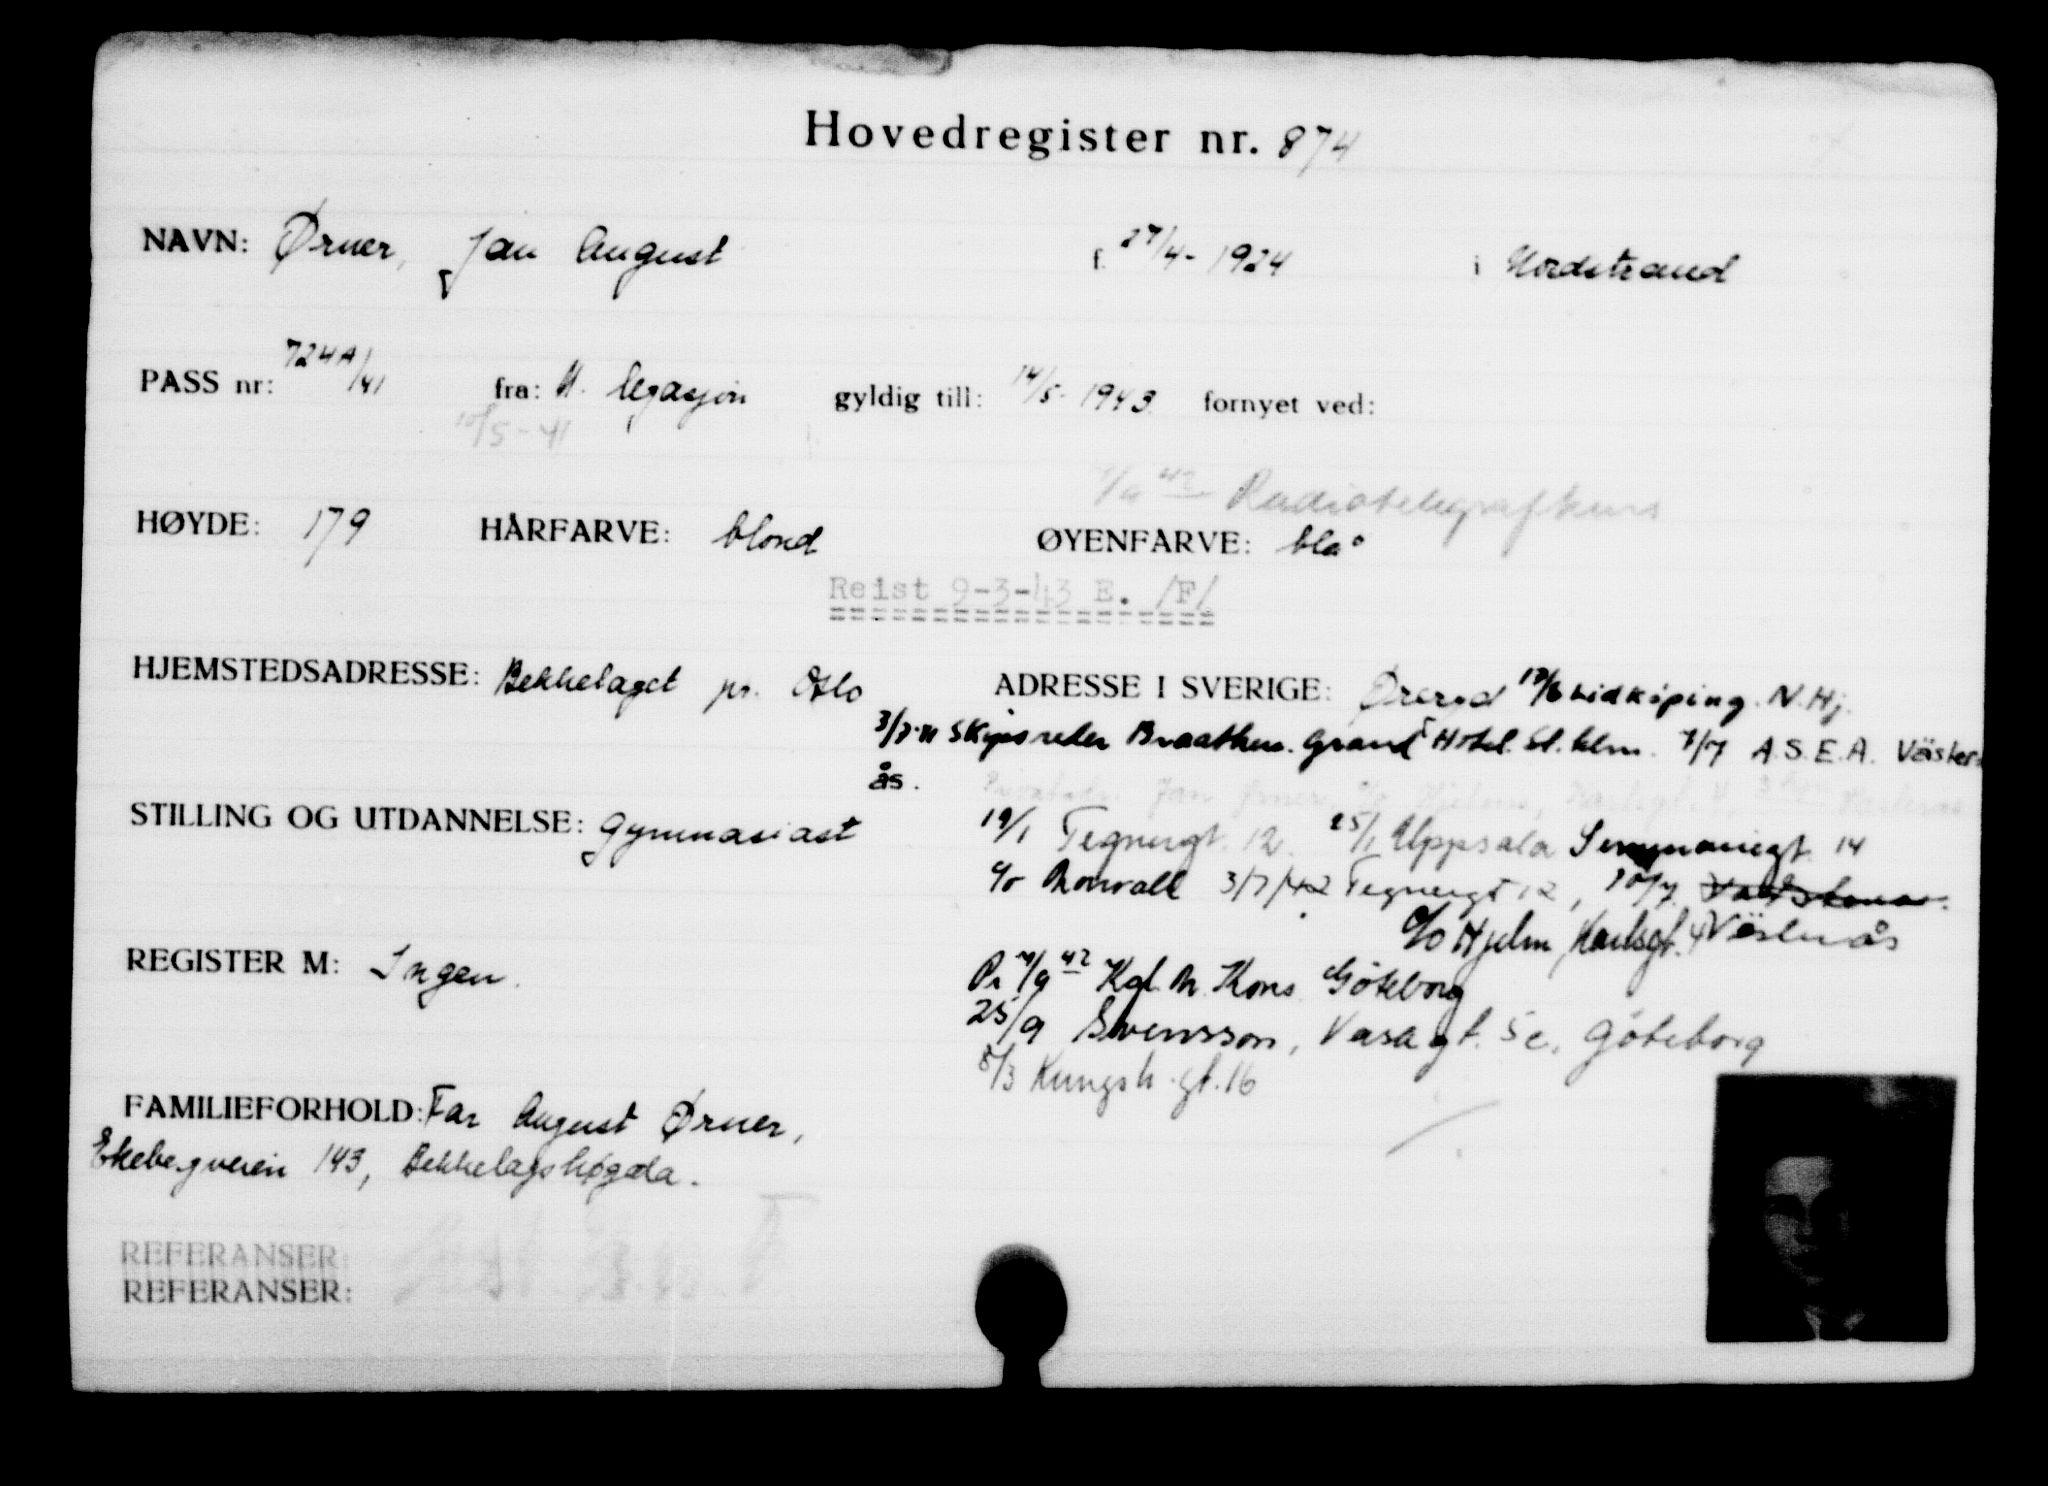 Hovedregister nr. 874
NAVN: Ørner, Jan August f. 27/4-1924 i Nordstrand
PASS nr: 724A/41 fra: N. legasjon gyldig till: 14/5-1943 fornyet ved:
/5-41
/9 42 Radiotelegrafkurs
HØYDE: 179 HÅRFARVE: blond ØYENFARVE: blå
Reist 9-3-43 E. /F/
HJEMSTEDSADRESSE: Bekkelaget pr. Oslo ADRESSE I SVERIGE: Øreryd /6 Lidköping. N.Hj.
3/7-41 Skipsreder Braathen. Grand Hotel. St.hlm. 7/7 A.S.E.A. Väster-
ås.
Jan Ørner, c/o Hjelm,
STILLING OG UTDANNELSE: Gymnasiast 19/1 Tegnergt. 12. 25/1 Uppsala 14
c/o 3/7/42 Tegnergt 12,
c/o Hjelm Karlsgt. 4 Västerås
REGISTER M: Ingen. /9 42 Kgl. N. Kons. Göteborg
25/9 Svensson, Vasagt. 5c, Göteborg
8/3 Kungsh.gt. 16
FAMILIEFORHOLD: Far August Ørner,
Ekebergveien 143, Bekkelagshøgda.
REFERANSER:
REFERANSER: